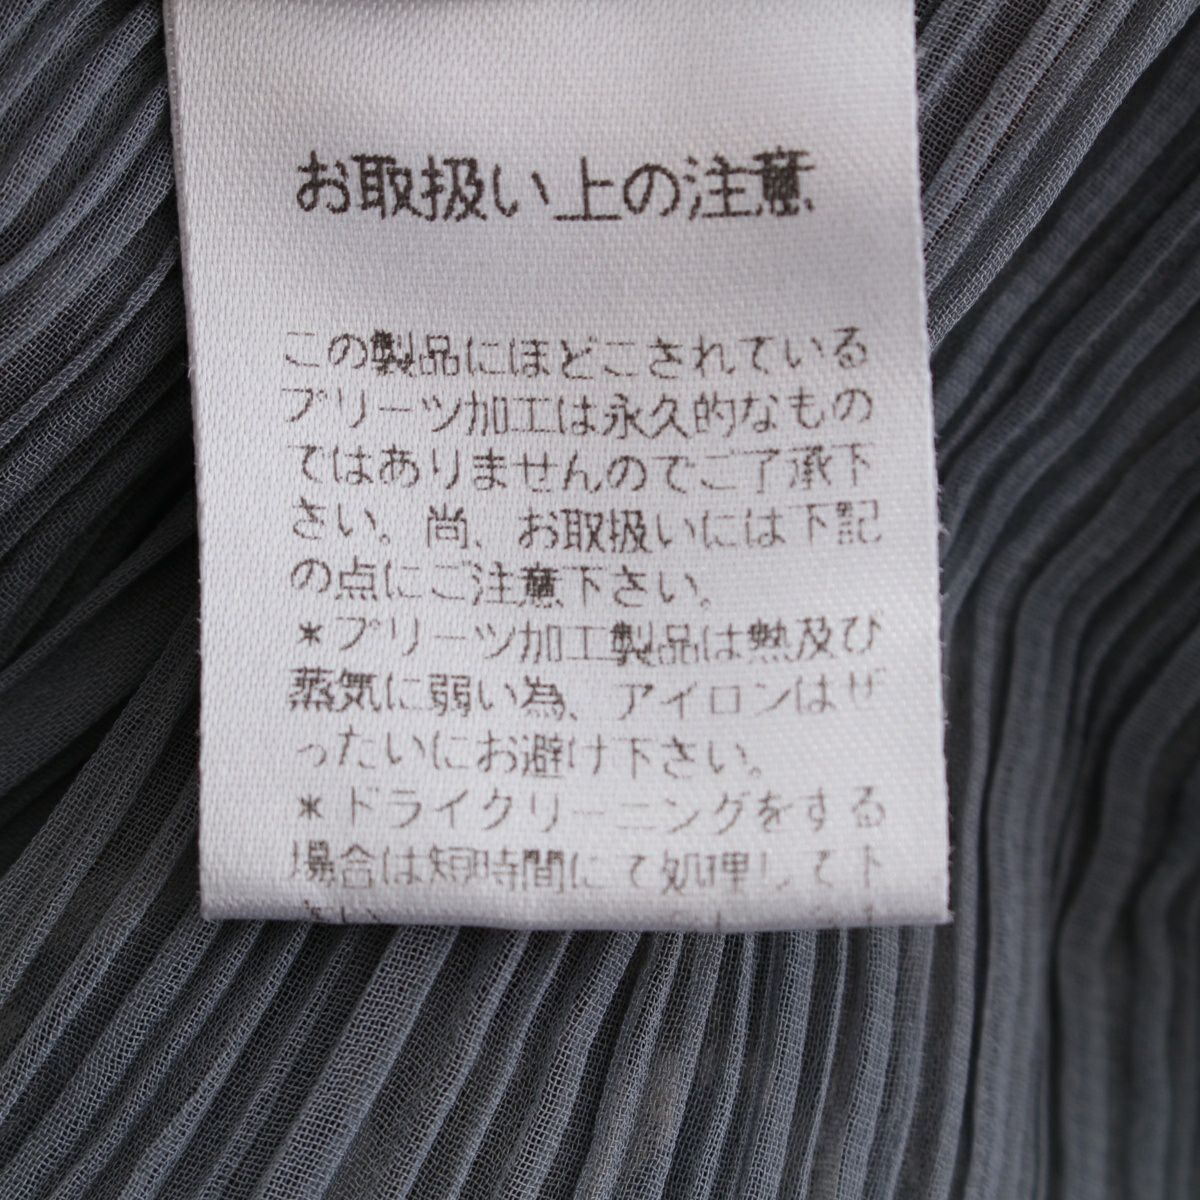 お取扱い上の注意
この製品にほどこされている
プリーツ加工は永久的なもの
ではありませんのでご了承下
さい。尚、お取扱いには下記
の点にご注意下さい。
*プリーツ加工製品は熱及び
蒸気に弱い為、アイロンはぜ
ったいにお避け下さい。
*ドライクリーニングをする
場合は短時間にて処理して下